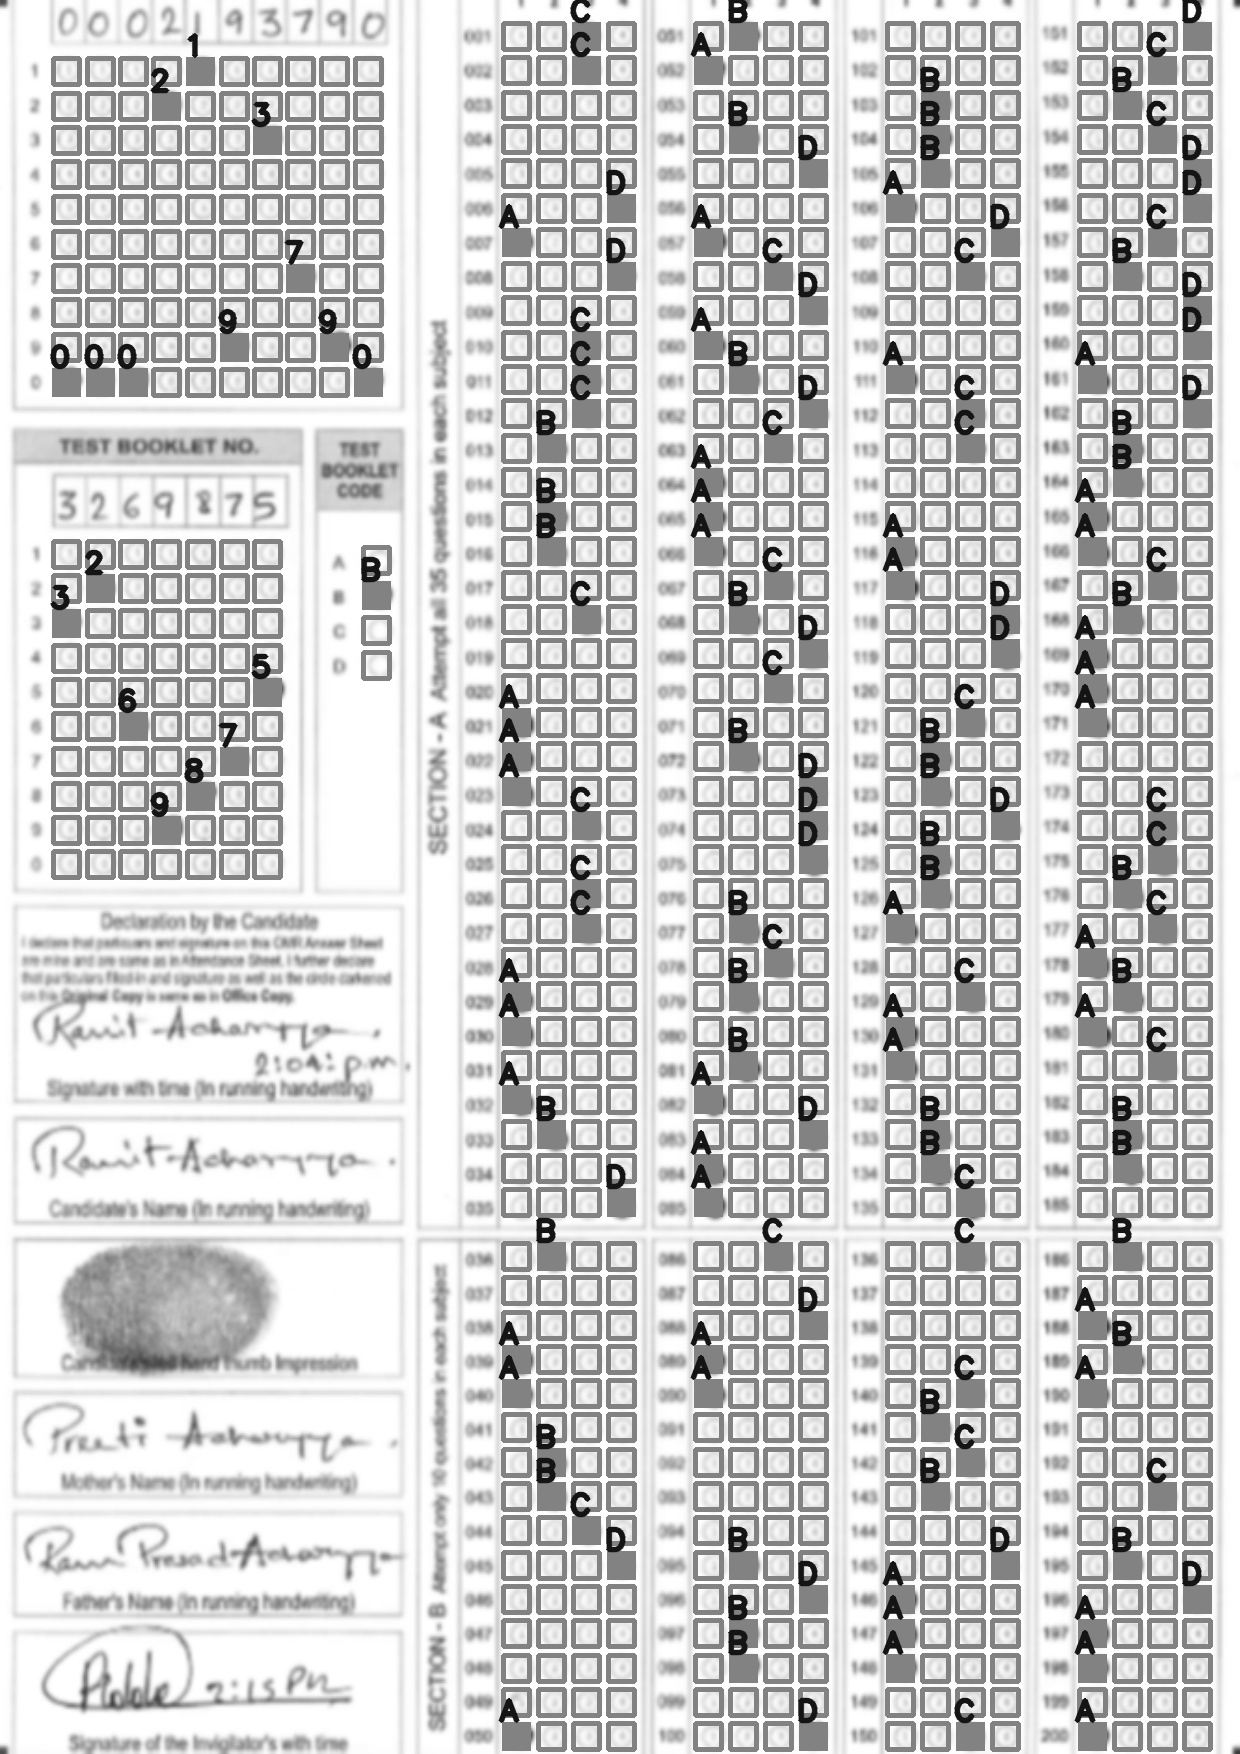 0 0 0 2 1 9 3 7 9 0
1
1 2
2 3
3
4
5
6 7
7
8 9 9
9 0 0 0 0
0
TEST BOOKLET NO.
3 2 6 9 8 7 5
1 2
2 3
3
4 5
5 6
6 7
7 8
8 9
9
0
TEST
BOOKLET
CODE
A B
B
C
D
Declaration by the Candidate
I declare that particulars and signature on this OMR Answer Sheet
are mine and are same as in Attendance Sheet. I further declare
that particulars filled-in and signature as well as the circle darkened
on this Original Copy is same as in Office Copy.
Ramit Acharyya.
2:04: p.m.
Signature with time (In running handwriting)
Ramit Acharyya.
Candidate's Name (In running handwriting)
Candidate's hand thumb Impression
Preeti Acharyya.
Mother's Name (In running handwriting)
Ram Prasad Acharyya
Father's Name (In running handwriting)
2:15 PM
Signature of the Invigilator's with time
SECTION - A Attempt all 35 questions in each subject
C
001 C
002
003
004
005 D
006 A
007 D
008
009 C
010 C
011 C
012 B
013
014 B
015 B
016
017 C
018
019
020 A
021 A
022 A
023 C
024
025 C
026 C
027
028 A
029 A
030
031 A
032 B
033
034 D
035
B
SECTION - B Attempt only 10 questions in each subject
036
037
038 A
039 A
040
041 B
042 B
043 C
044 D
045
046
047
048
049 A
050
B
051 A
052
053 B
054 D
055
056 A
057 C
058 D
059 A
060 B
061 D
062 C
063 A
064 A
065 A
066 C
067 B
068 D
069 C
070
071 B
072 D
073 D
074 D
075
076 B
077 C
078 B
079
080 B
081 A
082 D
083 A
084 A
085
C
086
087 D
088 A
089 A
090
091
092
093
094 B
095 D
096 B
097 B
098
099 D
100
101
102 B
103 B
104 B
105 A
106 D
107 C
108
109
110 A
111 C
112 C
113
114
115 A
116 A
117 D
118 D
119
120 C
121 B
122 B
123 D
124 B
125 B
126 A
127
128 C
129 A
130 A
131
132 B
133 B
134 C
135
C
136
137
138
139 C
140 B
141 C
142 B
143
144 D
145 A
146 A
147 A
148
149 C
150
D
151 C
152 B
153 C
154 D
155 D
156 C
157 B
158 D
159 D
160 A
161 D
162 B
163 B
164 A
165 A
166 C
167 B
168 A
169 A
170 A
171
172
173 C
174 C
175 B
176 C
177 A
178 B
179 A
180 C
181
182 B
183 B
184
185
B
186
187 A
188 B
189 A
190
191
192 C
193
194 B
195 D
196 A
197 A
198
199 A
200